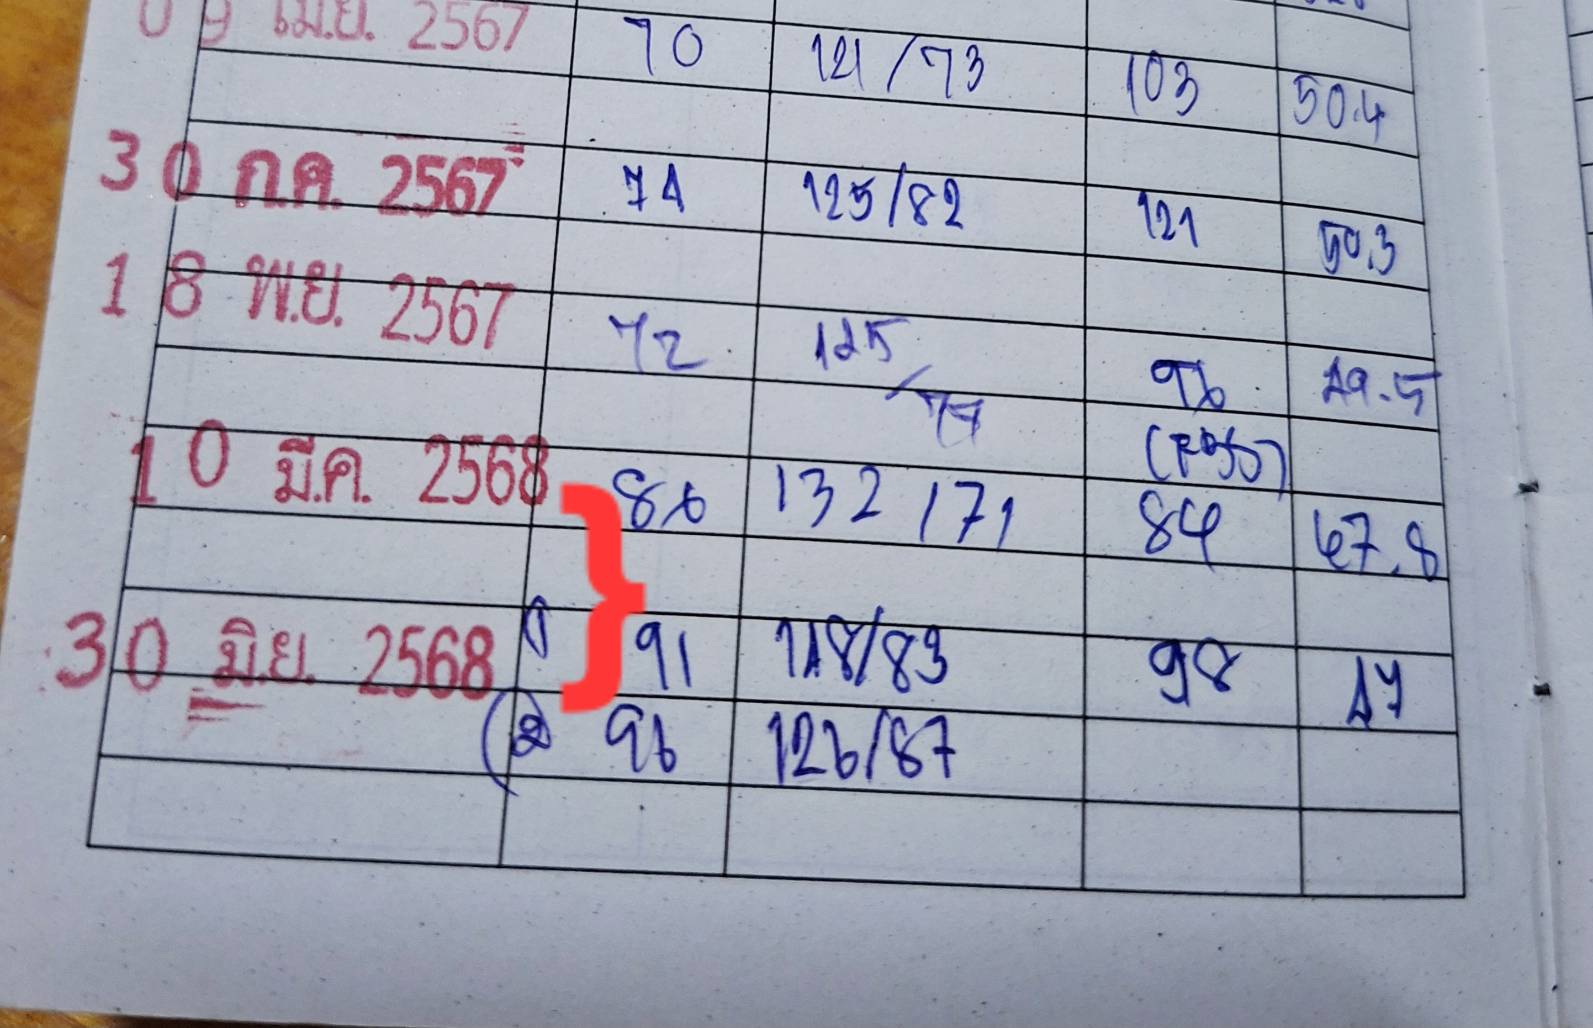 09 เม.ย. 2567 70 121/73 103 50.4
30 ก.ค. 2567 74 125/82 121 50.3
18 พ.ย. 2567 72 125/77 96 49.5
(FBS)
10 มี.ค. 2568 86 132/71 84 47.8
30 มิ.ย. 2568 ① 91 118/83 98 47
(② 96 126/87